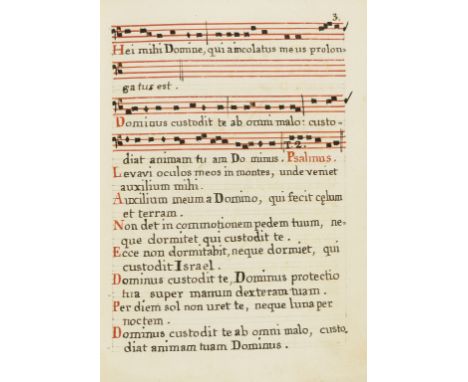 3.
Hei mihi Domine, qui aincolatus meus prolon-
gatus est.
Dominus custodit te ab omni malo: custo-
T. 2.
diat animam tuam Dominus. Psalmus.
Levavi oculos meos in montes, unde vemet
auxilium mihi.
Auxilium meum a Domino, qui fecit cęlum
et terram.
Non det in commotionem pedem tuum, ne-
que dormitet qui custodit te.
Ecce non dormitabit, neque dormiet, qui
custodit Israel.
Dominus custodit te, Dominus protectio
tua super manum dexteram tuam.
Per diem sol non uret te, neque luna per
noctem.
Dominus custodit te ab omni malo, custo
diat animam tuam Dominus.